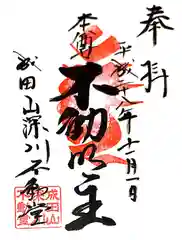 奉拝
平成二十八年十一月一日
本尊
不動明王
成田山深川不動堂